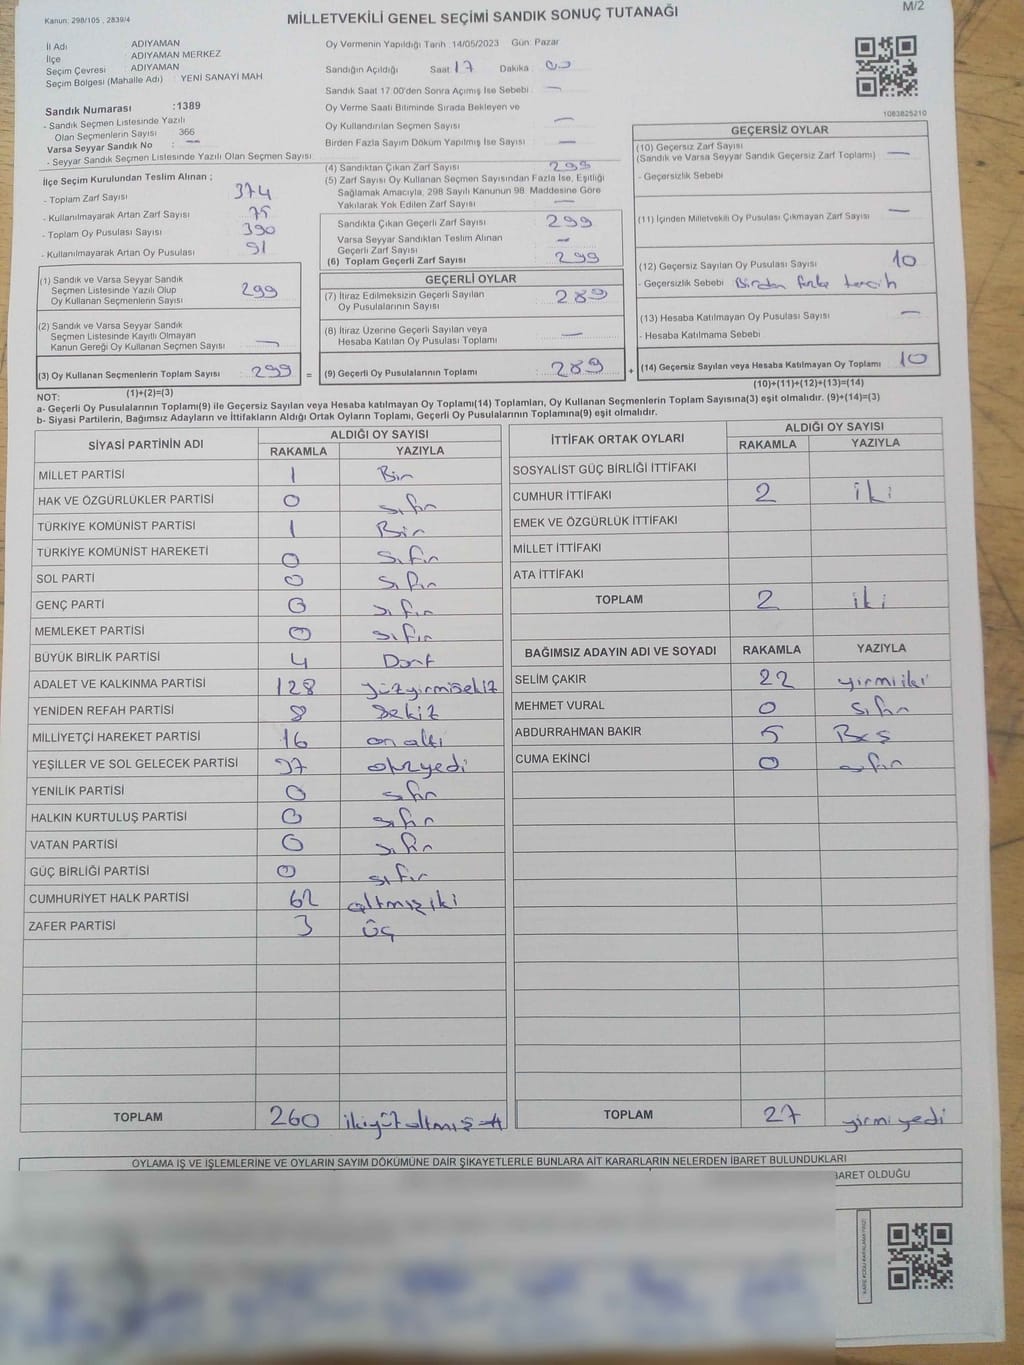 Kanun: 298/105 , 2839/4
MİLLETVEKİLİ GENEL SEÇİMİ SANDIK SONUÇ TUTANAĞI
M/2
İl Adı ADIYAMAN
İlçe ADIYAMAN MERKEZ
Seçim Çevresi ADIYAMAN
Seçim Bölgesi (Mahalle Adı) : YENİ SANAYİ MAH
Sandık Numarası :1389
- Sandık Seçmen Listesinde Yazılı
Olan Seçmenlerin Sayısı 366
Varsa Seyyar Sandık No : —
- Seyyar Sandık Seçmen Listesinde Yazılı Olan Seçmen Sayısı
İlçe Seçim Kurulundan Teslim Alınan ;
- Toplam Zarf Sayısı 374
- Kullanılmayarak Artan Zarf Sayısı 75
- Toplam Oy Pusulası Sayısı 390
- Kullanılmayarak Artan Oy Pusulası 91
(1) Sandık ve Varsa Seyyar Sandık
Seçmen Listesinde Yazılı Olup
Oy Kullanan Seçmenlerin Sayısı 299
(2) Sandık ve Varsa Seyyar Sandık
Seçmen Listesinde Kayıtlı Olmayan
Kanun Gereği Oy Kullanan Seçmen Sayısı —
(3) Oy Kullanan Seçmenlerin Toplam Sayısı : 299 =
(1)+(2)=(3)
Oy Vermenin Yapıldığı Tarih :14/05/2023 Gün: Pazar
Sandığın Açıldığı Saat 17 Dakika : 00
Sandık Saat 17.00'den Sonra Açımış İse Sebebi : —
Oy Verme Saati Bitiminde Sırada Bekleyen ve
Oy Kullandırılan Seçmen Sayısı —
Birden Fazla Sayım Döküm Yapılmış İse Sayısı : —
(4) Sandıktan Çıkan Zarf Sayısı 299
(5) Zarf Sayısı Oy Kullanan Seçmen Sayısından Fazla İse, Eşitliği
Sağlamak Amacıyla, 298 Sayılı Kanunun 98. Maddesine Göre
Yakılarak Yok Edilen Zarf Sayısı —
Sandıkta Çıkan Geçerli Zarf Sayısı : 299
Varsa Seyyar Sandıktan Teslim Alınan
Geçerli Zarf Sayısı —
(6) Toplam Geçerli Zarf Sayısı : 299
GEÇERLİ OYLAR
(7) İtiraz Edilmeksizin Geçerli Sayılan
Oy Pusulalarının Sayısı : 289
(8) İtiraz Üzerine Geçerli Sayılan veya
Hesaba Katılan Oy Pusulası Toplamı : —
(9) Geçerli Oy Pusulalarının Toplamı : 289 +
1083825210
GEÇERSİZ OYLAR
(10) Geçersiz Zarf Sayısı
(Sandık ve Varsa Seyyar Sandık Geçersiz Zarf Toplamı) : —
- Geçersizlik Sebebi
(11) İçinden Milletvekili Oy Pusulası Çıkmayan Zarf Sayısı : —
(12) Geçersiz Sayılan Oy Pusulası Sayısı : 10
- Geçersizlik Sebebi : Birden fazla tercih
(13) Hesaba Katılmayan Oy Pusulası Sayısı : —
- Hesaba Katılmama Sebebi
(14) Geçersiz Sayılan veya Hesaba Katılmayan Oy Toplamı : 10
(10)+(11)+(12)+(13)=(14)
NOT:
a- Geçerli Oy Pusulalarının Toplamı(9) ile Geçersiz Sayılan veya Hesaba katılmayan Oy Toplamı(14) Toplamları, Oy Kullanan Seçmenlerin Toplam Sayısına(3) eşit olmalıdır. (9)+(14)=(3)
b- Siyasi Partilerin, Bağımsız Adayların ve İttifakların Aldığı Ortak Oyların Toplamı, Geçerli Oy Pusulalarının Toplamına(9) eşit olmalıdır.
SİYASİ PARTİNİN ADI ALDIĞI OY SAYISI
RAKAMLA YAZIYLA
MİLLET PARTİSİ 1 Bir
HAK VE ÖZGÜRLÜKLER PARTİSİ 0 sıfır
TÜRKİYE KOMÜNİST PARTİSİ 1 Bir
TÜRKİYE KOMÜNİST HAREKETİ 0 sıfır
SOL PARTİ 0 sıfır
GENÇ PARTİ 0 sıfır
MEMLEKET PARTİSİ 0 sıfır
BÜYÜK BİRLİK PARTİSİ 4 Dört
ADALET VE KALKINMA PARTİSİ 128 yüzyirmisekiz
YENİDEN REFAH PARTİSİ 8 Sekiz
MİLLİYETÇİ HAREKET PARTİSİ 16 on altı
YEŞİLLER VE SOL GELECEK PARTİSİ 37 otuzyedi
YENİLİK PARTİSİ 0 sıfır
HALKIN KURTULUŞ PARTİSİ 0 sıfır
VATAN PARTİSİ 0 sıfır
GÜÇ BİRLİĞİ PARTİSİ 0 sıfır
CUMHURİYET HALK PARTİSİ 62 altmış iki
ZAFER PARTİSİ 3 üç
TOPLAM 260 ikiyüz altmış
İTTİFAK ORTAK OYLARI ALDIĞI OY SAYISI
RAKAMLA YAZIYLA
SOSYALİST GÜÇ BİRLİĞİ İTTİFAKI
CUMHUR İTTİFAKI 2 iki
EMEK VE ÖZGÜRLÜK İTTİFAKI
MİLLET İTTİFAKI
ATA İTTİFAKI
TOPLAM 2 iki
BAĞIMSIZ ADAYIN ADI VE SOYADI RAKAMLA YAZIYLA
SELİM ÇAKIR 22 yirmi iki
MEHMET VURAL 0 sıfır
ABDURRAHMAN BAKIR 5 Beş
CUMA EKİNCİ 0 sıfır
TOPLAM 27 yirmi yedi
OYLAMA İŞ VE İŞLEMLERİNE VE OYLARIN SAYIM DÖKÜMÜNE DAİR ŞİKAYETLERLE BUNLARA AİT KARARLARIN NELERDEN İBARET BULUNDUKLARI
BARET OLDUĞU